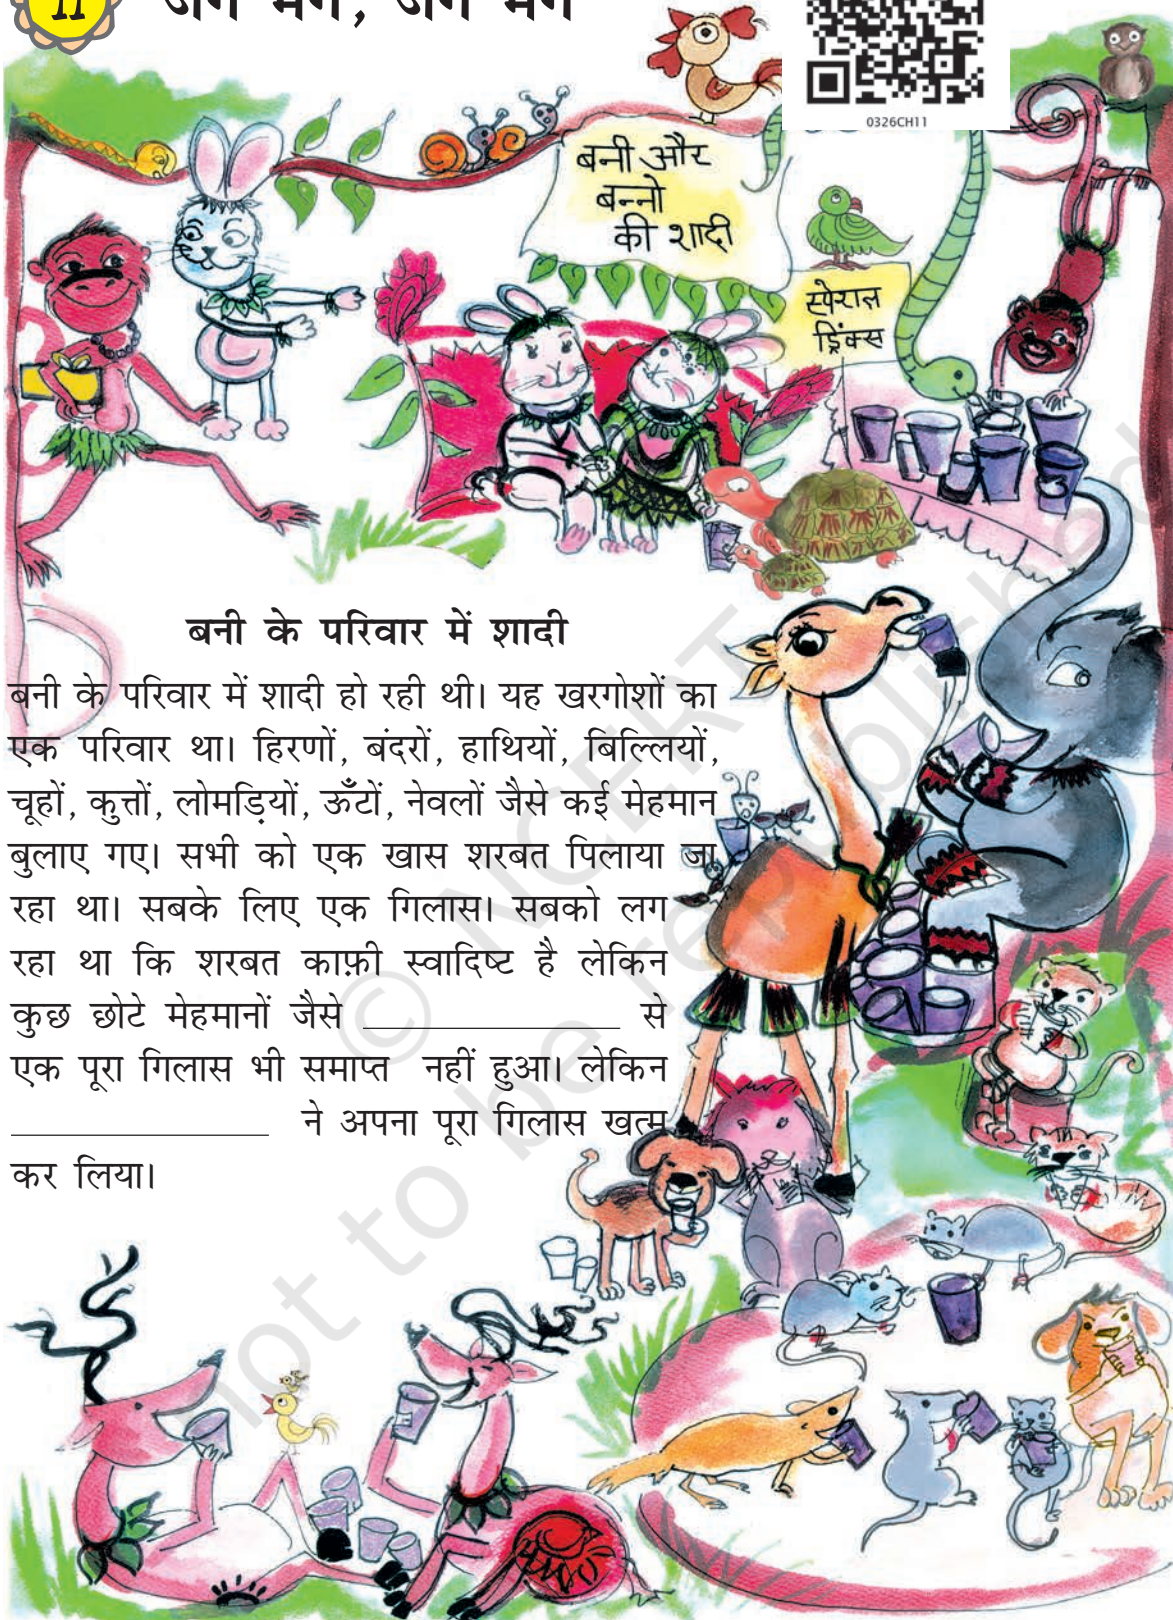 11 जग मग, जग मग
0326CH11
बनी और
बन्नो
की शादी
स्पेशल
ड्रिंक्स
बनी के परिवार में शादी
बनी के परिवार में शादी हो रही थी। यह खरगोशों का
एक परिवार था। हिरणों, बंदरों, हाथियों, बिल्लियों,
चूहों, कुत्तों, लोमड़ियों, ऊँटों, नेवलों जैसे कई मेहमान
बुलाए गए। सभी को एक खास शरबत पिलाया जा
रहा था। सबके लिए एक गिलास। सबको लग
रहा था कि शरबत काफ़ी स्वादिष्ट है लेकिन
कुछ छोटे मेहमानों जैसे ________________ से
एक पूरा गिलास भी समाप्त नहीं हुआ। लेकिन
________________ ने अपना पूरा गिलास खत्म
कर लिया।
© NCERT
not to be republished